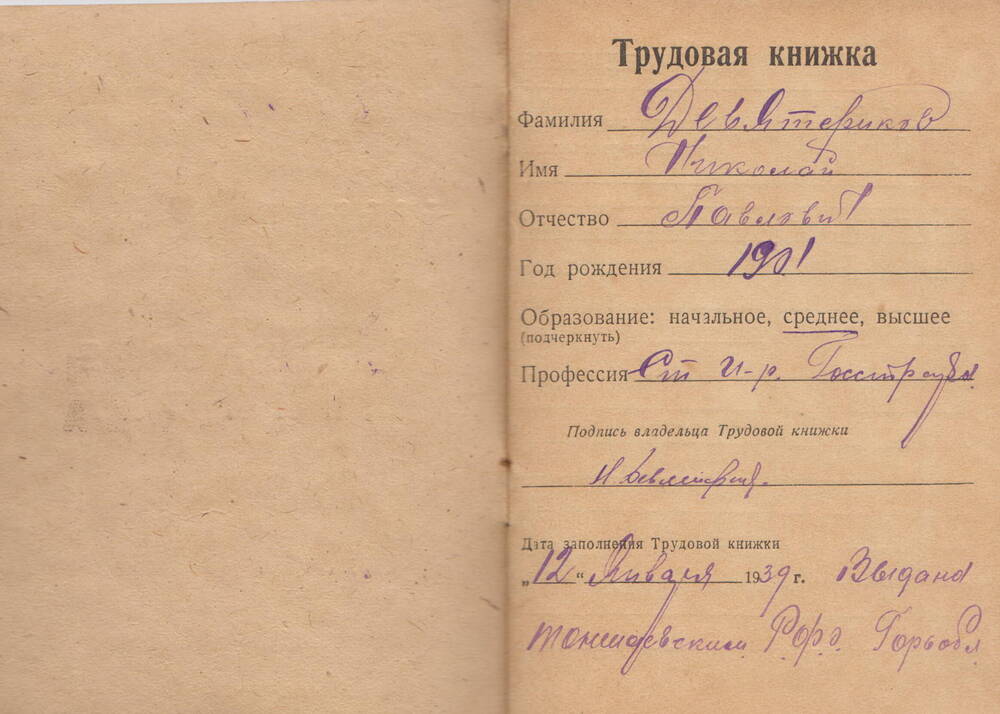 Трудовая книжка
Фамилия Девятериков
Имя Николай
Отчество Павлович
Год рождения 1901
Образование: начальное, среднее, высшее
(подчеркнуть)
Профессия Ст и-р. Госстраха
Подпись владельца Трудовой книжки
Дата заполнения Трудовой книжки
„12“ Января 1939 г. Выдана
тоншаевским Горьобл